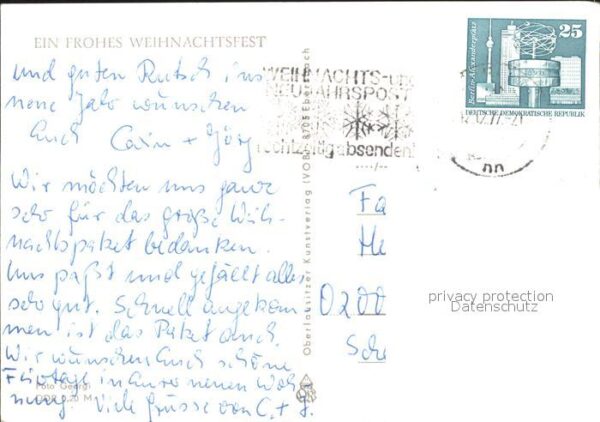 EIN FROHES WEIHNACHTSFEST
und guten Rutsch ins
neue Jahr wünschen
Euch Carin + Jörg
Wir möchten uns ganz
sehr für das große Weih-
nachtspaket bedanken.
Uns paßt und gefällt alles
sehr gut. Schnell angekom
men ist das Paket auch.
Wir wünschen Euch schöne
Feiertage in Eurer neuen Woh
nung. Viele Grüsse von C. + J.
Foto Georgi
DDR 0,20 M
Oberlausitzer Kunstverlag (VOB) 8705 Ebersbach
WEIHNACHTS-und
NEUJAHRSPOST
rechtzeitig absenden!
25
Berlin-Alexanderplatz
DEUTSCHE DEMOKRATISCHE REPUBLIK
Fa
He
0200
Sche
privacy protection
Datenschutz